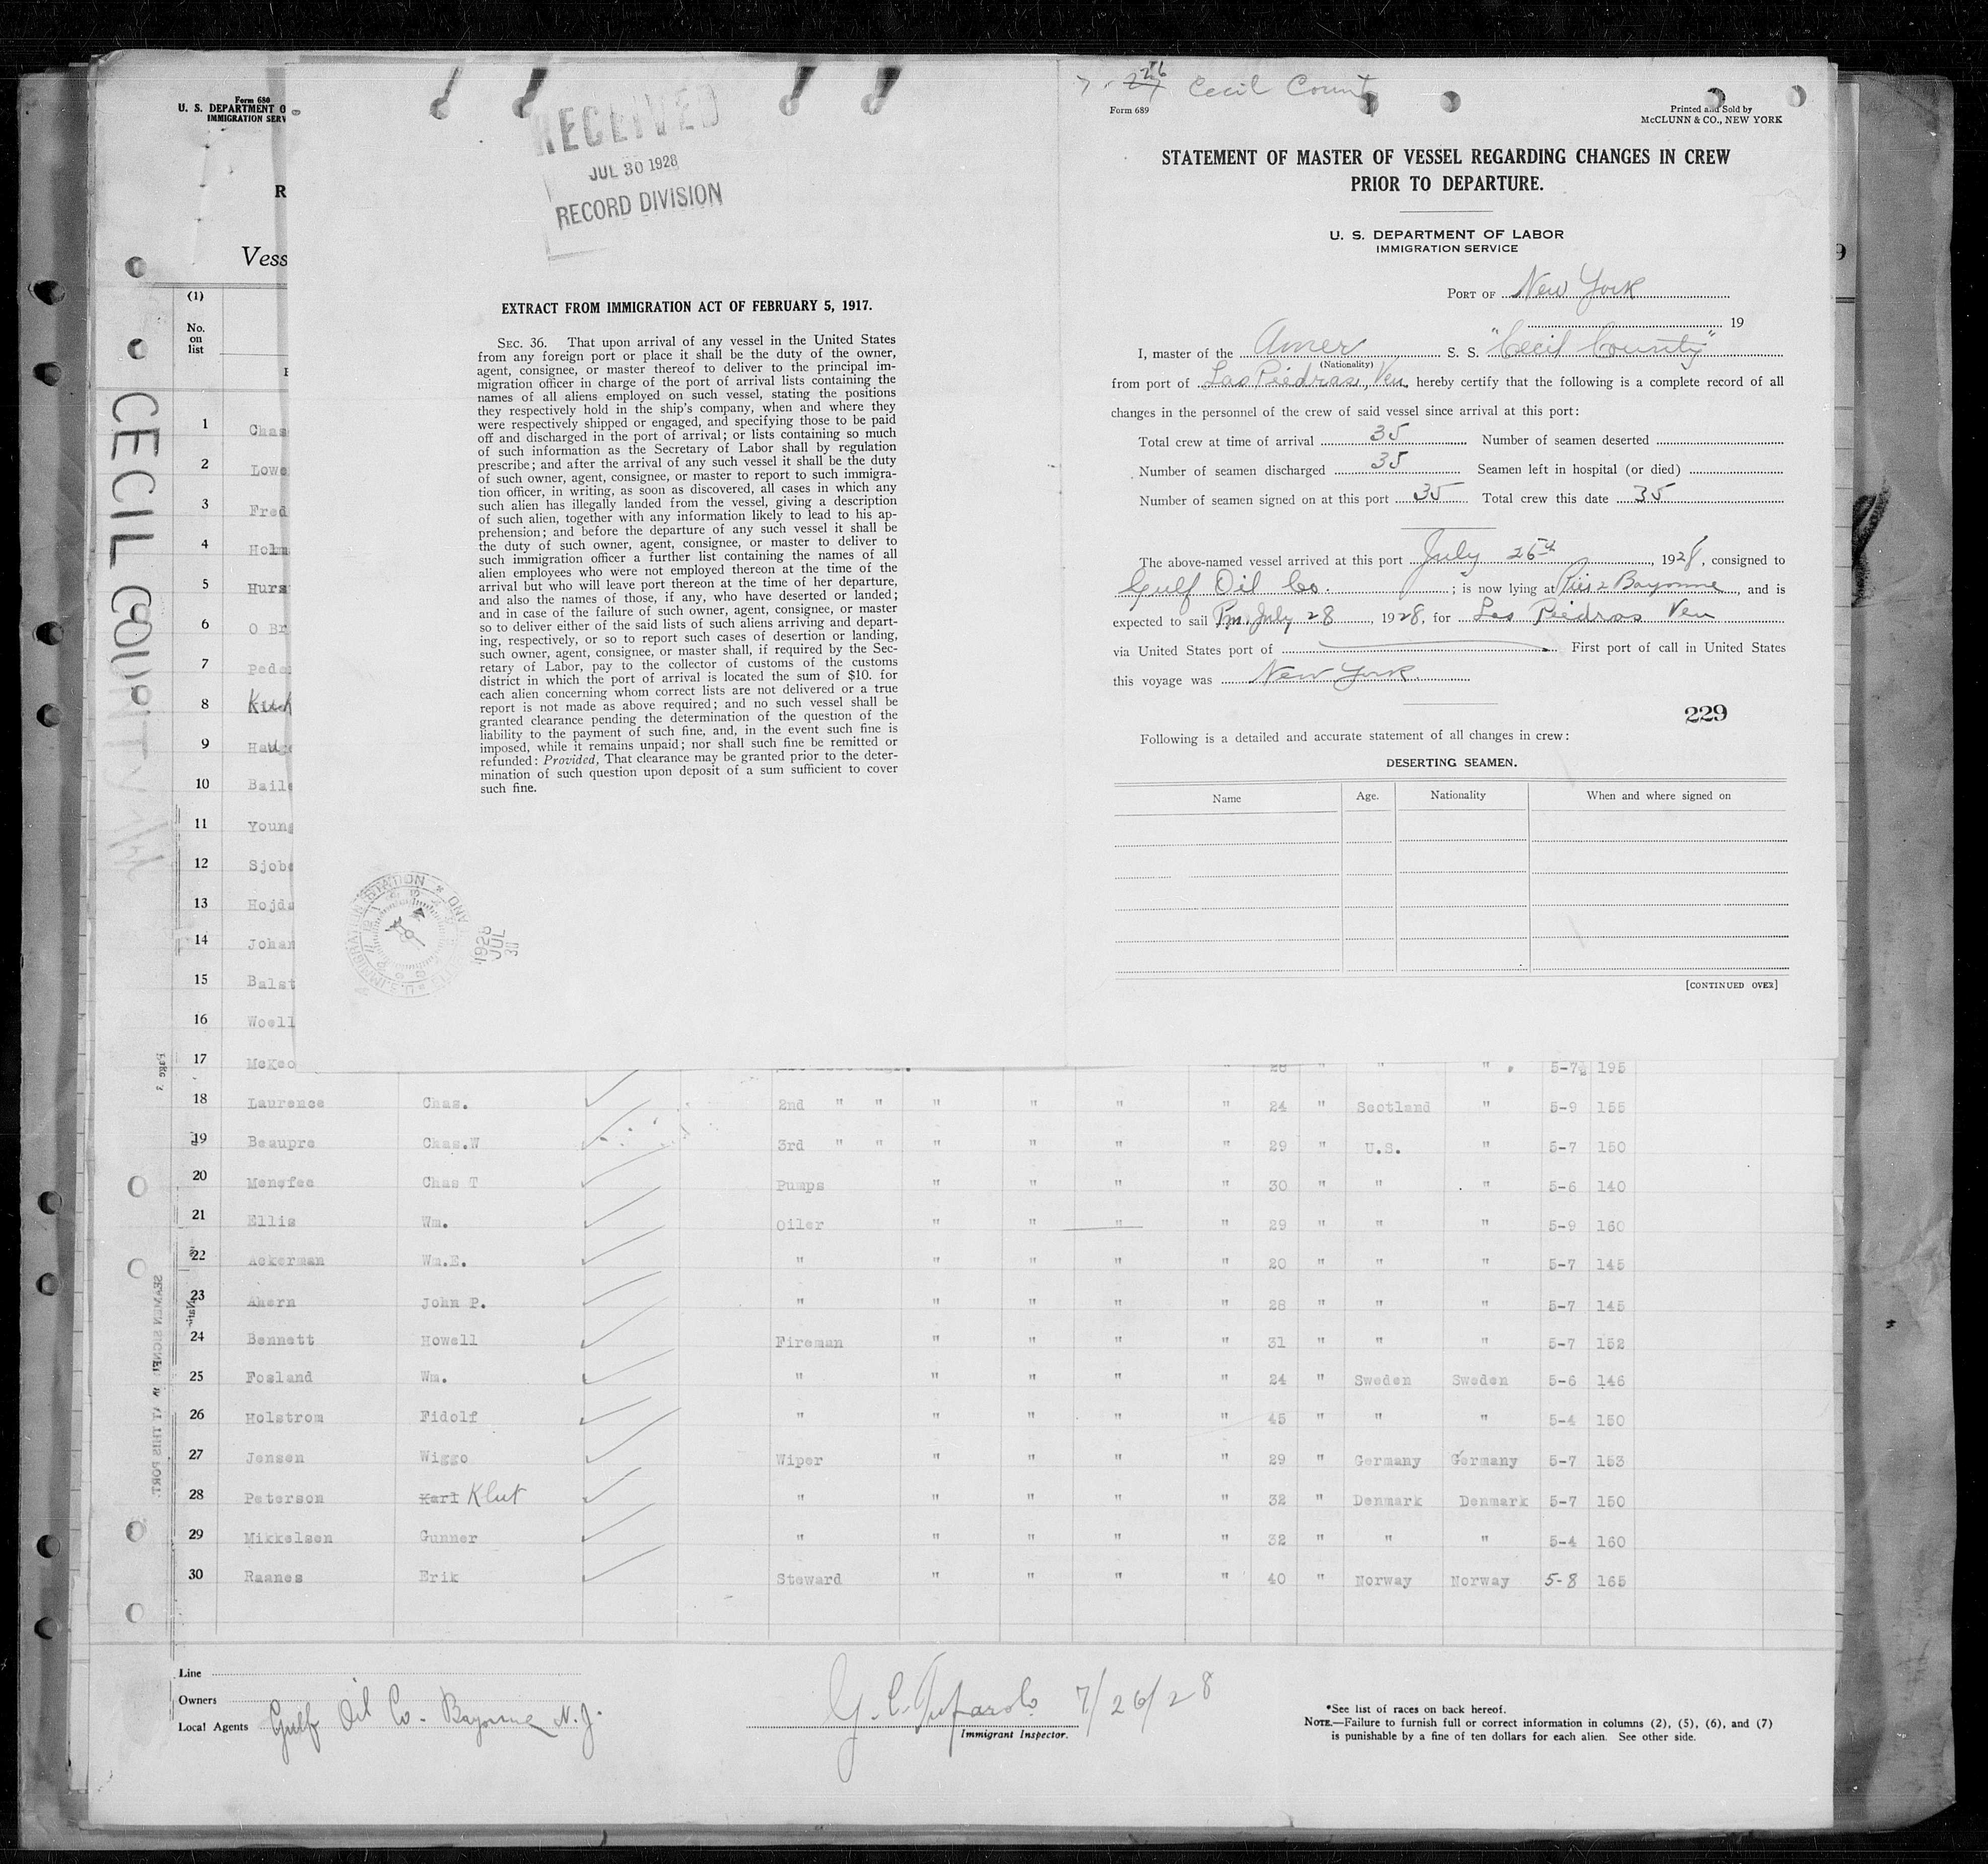 Form 680
U. S. DEPARTMENT O
IMMIGRATION SERV
R
Vess
(1)
No.
on
list
CECIL COUNTY
1 Chas
2 Lowe
3 Fred
4 Holm
5 Hurs
6 O Br
7 Pede
8
9 Hauge
10 Baile
11 Young
12 Sjobe
13 Hojda
14 Johan
15 Balst
16 Woell
17 McKeo
RECEIVED
JUL 30 1928
RECORD DIVISION
EXTRACT FROM IMMIGRATION ACT OF FEBRUARY 5, 1917.
SEC. 36. That upon arrival of any vessel in the United States
from any foreign port or place it shall be the duty of the owner,
agent, consignee, or master thereof to deliver to the principal im-
migration officer in charge of the port of arrival lists containing the
names of all aliens employed on such vessel, stating the positions
they respectively hold in the ship's company, when and where they
were respectively shipped or engaged, and specifying those to be paid
off and discharged in the port of arrival; or lists containing so much
of such information as the Secretary of Labor shall by regulation
prescribe; and after the arrival of any such vessel it shall be the duty
of such owner, agent, consignee, or master to report to such immigra-
tion officer, in writing, as soon as discovered, all cases in which any
such alien has illegally landed from the vessel, giving a description
of such alien, together with any information likely to lead to his ap-
prehension; and before the departure of any such vessel it shall be
the duty of such owner, agent, consignee, or master to deliver to
such immigration officer a further list containing the names of all
alien employees who were not employed thereon at the time of the
arrival but who will leave port thereon at the time of her departure,
and also the names of those, if any, who have deserted or landed;
and in case of the failure of such owner, agent, consignee, or master
so to deliver either of the said lists of such aliens arriving and depart-
ing, respectively, or so to report such cases of desertion or landing,
such owner, agent, consignee, or master shall, if required by the Sec-
retary of Labor, pay to the collector of customs of the customs
district in which the port of arrival is located the sum of $10. for
each alien concerning whom correct lists are not delivered or a true
report is not made as above required; and no such vessel shall be
granted clearance pending the determination of the question of the
liability to the payment of such fine, and, in the event such fine is
imposed, while it remains unpaid; nor shall such fine be remitted or
refunded: Provided, That clearance may be granted prior to the deter-
mination of such question upon deposit of a sum sufficient to cover
such fine.
1928
JUL
30
Cecil County
Form 689
Printed and Sold by
McCLUNN & CO., NEW YORK
STATEMENT OF MASTER OF VESSEL REGARDING CHANGES IN CREW
PRIOR TO DEPARTURE.
U. S. DEPARTMENT OF LABOR
IMMIGRATION SERVICE
PORT OF New York
19
I, master of the Amer S. S. "Cecil County"
(Nationality)
from port of Las Piedras, Ven, hereby certify that the following is a complete record of all
changes in the personnel of the crew of said vessel since arrival at this port:
Total crew at time of arrival 35 Number of seamen deserted
Number of seamen discharged 35 Seamen left in hospital (or died)
Number of seamen signed on at this port 35 Total crew this date 35
The above-named vessel arrived at this port July 26th, 1928, consigned to
Gulf Oil Co. ; is now lying at Pier 2 Bayonne, and is
expected to sail Pm. July 28, 1928, for Las Piedras Ven
via United States port of First port of call in United States
this voyage was New York.
229
Following is a detailed and accurate statement of all changes in crew:
DESERTING SEAMEN.
Name Age. Nationality When and where signed on
[CONTINUED OVER]
28 " " " 5-7½ 195
18 Laurence Chas. 2nd " " " " " " 24 " Scotland " 5-9 155
19 Beaupre Chas.W 3rd " " " " " " 29 " U.S. " 5-7 150
20 Menefee Chas T Pumps " " " " 30 " " " 5-6 140
21 Ellis Wm. Oiler " " " " 29 " " " 5-9 160
22 Ackerman Wm.E. " " " " " 20 " " " 5-7 145
23 Ahern John P. " " " " " 28 " " " 5-7 145
24 Bennett Howell Fireman " " " " 31 " " " 5-7 152
25 Fosland Wm. " " " " " 24 " Sweden Sweden 5-6 146
26 Holstrom Fidolf " " " " " 45 " " " 5-4 150
27 Jensen Wiggo Wiper " " " " 29 " Germany Germany 5-7 153
28 Peterson Karl Klut " " " " " 32 " Denmark Denmark 5-7 150
29 Mikkelsen Gunner " " " " " 32 " " " 5-4 160
30 Raanes Erik Steward " " " " 40 " Norway Norway 5-8 165
Line
Owners
Local Agents Gulf Oil Co. Bayonne N.J.
7/26/28
Immigrant Inspector.
*See list of races on back hereof.
NOTE.—Failure to furnish full or correct information in columns (2), (5), (6), and (7)
is punishable by a fine of ten dollars for each alien. See other side.